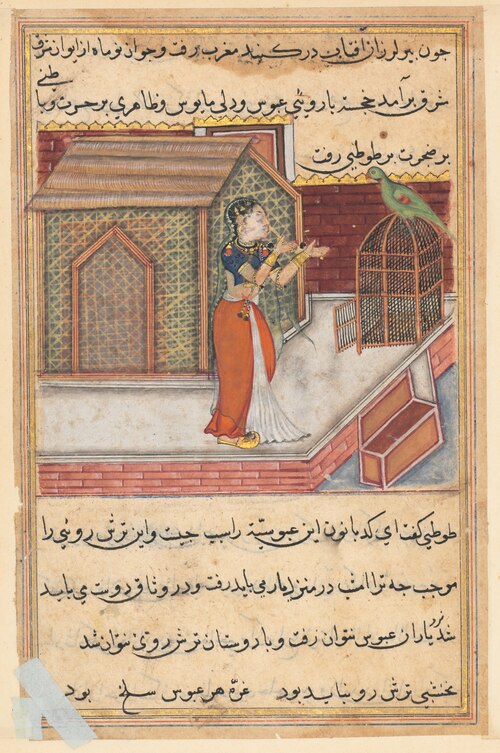 چون پیر لرزان آفتاب در کنبد مغرب رفت و جوان نو ماه از ایوان
شرق برآمد خجسته با روئی عبوس و دلی مایوس و ظاهری پر حسرت و
طنی
پر ضجرت بر طوطی رفت
طوطی کفت ای کدبانو این عبوسیّة را سبب چیست و این ترش روئی را
موجب چه ترا امشب در منزل یار می باید رفت و در وثاق دوست می باید
شد نزد یاران عبوس نتوان رفت و با دوستان ترش روئی نتوان شد
نخشبی ترش رو نباید بود غرّه هر عبوس سلخ بود